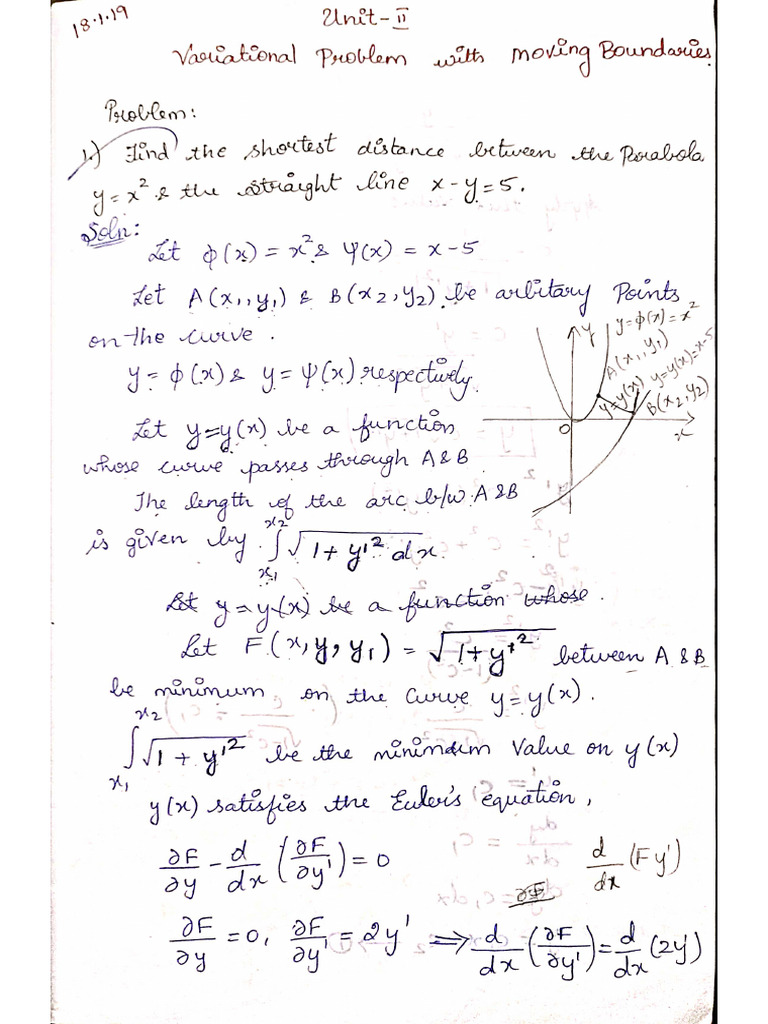 18.1.19
Unit-II
Variational Problem with Moving Boundaries.
Problem:
1.) Find the shortest distance between the Parabola
y = x² & the straight line x - y = 5.
Soln:
Let φ(x) = x² & Ψ(x) = x - 5
Let A(x₁, y₁) & B(x₂, y₂) be arbitary Points
on the curve.
y = φ(x) & y = Ψ(x) respectively.
Let y = y(x) be a function
whose curve passes through A & B.
The length of the arc b/w A & B
is given by ∫_{x₁}^{x₂} √(1 + y'²) dx.
y
y = φ(x) = x²
A(x₁, y₁)
y = y(x)
y = y(x) = x-5
B(x₂, y₂)
O
x
Let y = y(x) be a function whose.
Let F(x, y, y₁) = √(1 + y'²) between A & B
be minimum on the curve y = y(x).
∫_{x₁}^{x₂} √(1 + y'²) be the minimum Value on y(x)
y(x) satisfies the Euler's equation,
∂F/∂y - d/dx (∂F/∂y') = 0
d/dx (Fy')
∂F
∂F/∂y = 0, ∂F/∂y' = 2y' ⟹ d/dx (∂F/∂y') = d/dx (2y')